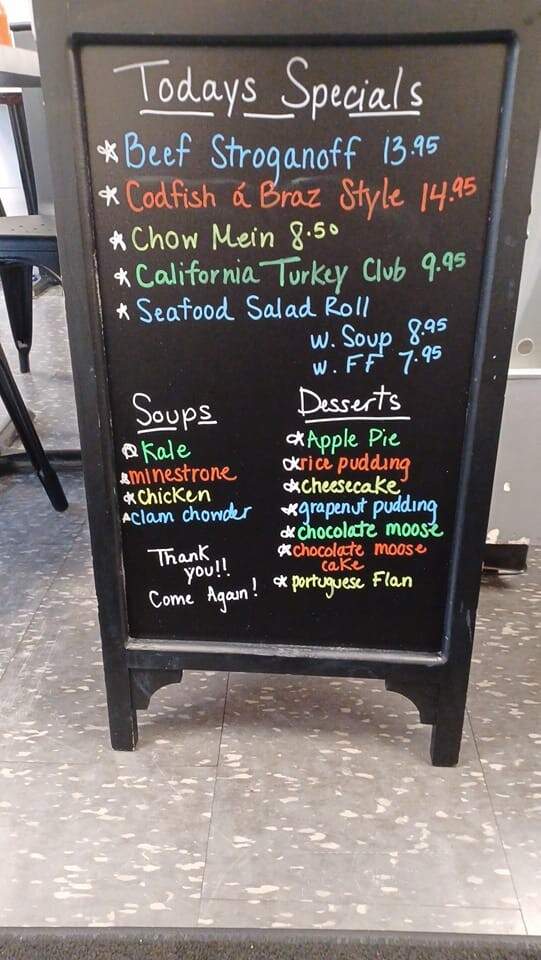 Todays Specials
Beef Stroganoff 13.95
Codfish á Braz Style 14.95
Chow Mein 8.50
California Turkey Club 9.95
Seafood Salad Roll
w. Soup 8.95
w. FF 7.95
Soups
Kale
minestrone
chicken
clam chowder
Thank
you!!
Come Again!
Desserts
Apple Pie
rice pudding
cheesecake
grapenut pudding
chocolate moose
chocolate moose
cake
portuguese Flan